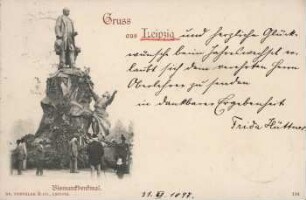 Gruss
aus Leipzig und herzliche Glück-
wünsche beim Jahreswechsel er-
laubt sich dem verehrten Herrn
Oberlehrer zu senden
in dankbarer Ergebenheit
Frida Hüttner
Bismarckdenkmal.
31. XII. 1897.